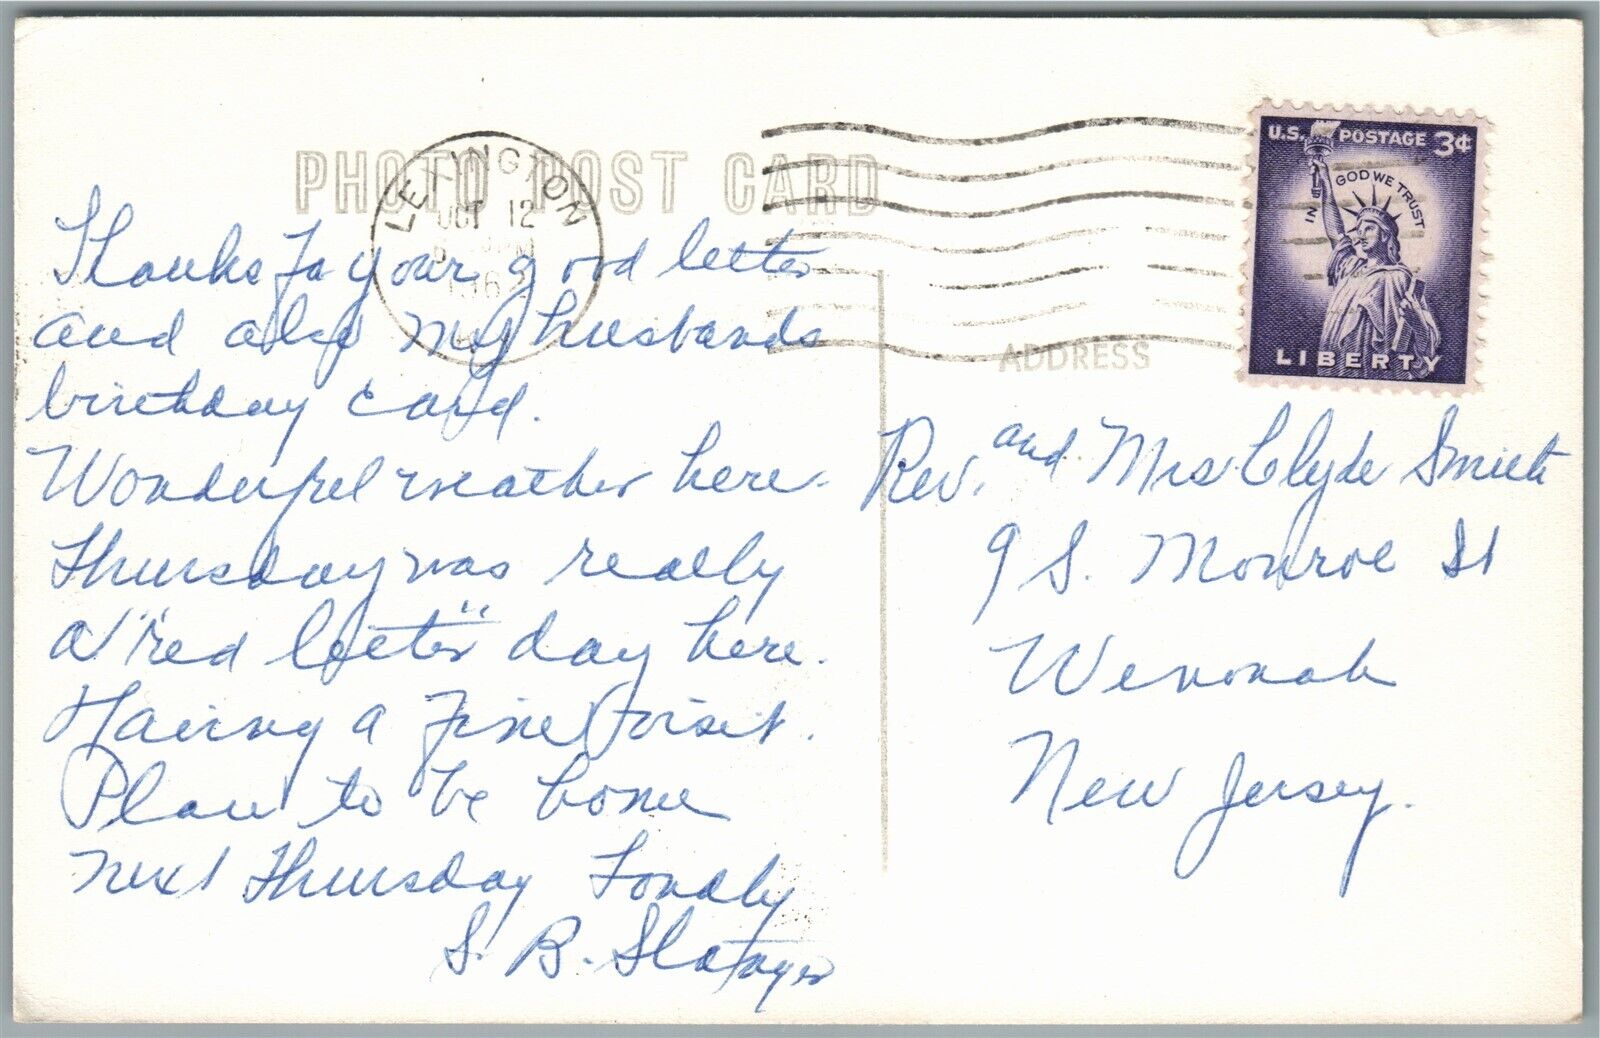 PHOTO POST CARD
LEXINGTON
OCT 12
PM
196
U.S. POSTAGE 3¢
IN GOD WE TRUST
LIBERTY
Thanks for your good letter
and also my husbands
birthday card.
Wonderful weather here.
Thursday was really
a "red letter" day here.
Having a fine visit.
Plan to be home
next Thursday Fondly
S. B.
ADDRESS
Rev. and Mrs Clyde Smith
9 S. Monroe St
Wenonah
New Jersey.